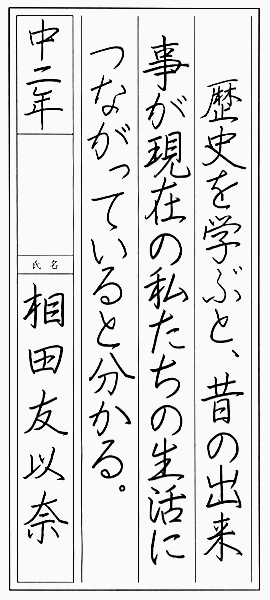 歴史を学ぶと、昔の出来
事が現在の私たちの生活に
つながっていると分かる。
中二年
氏名
相田友以奈